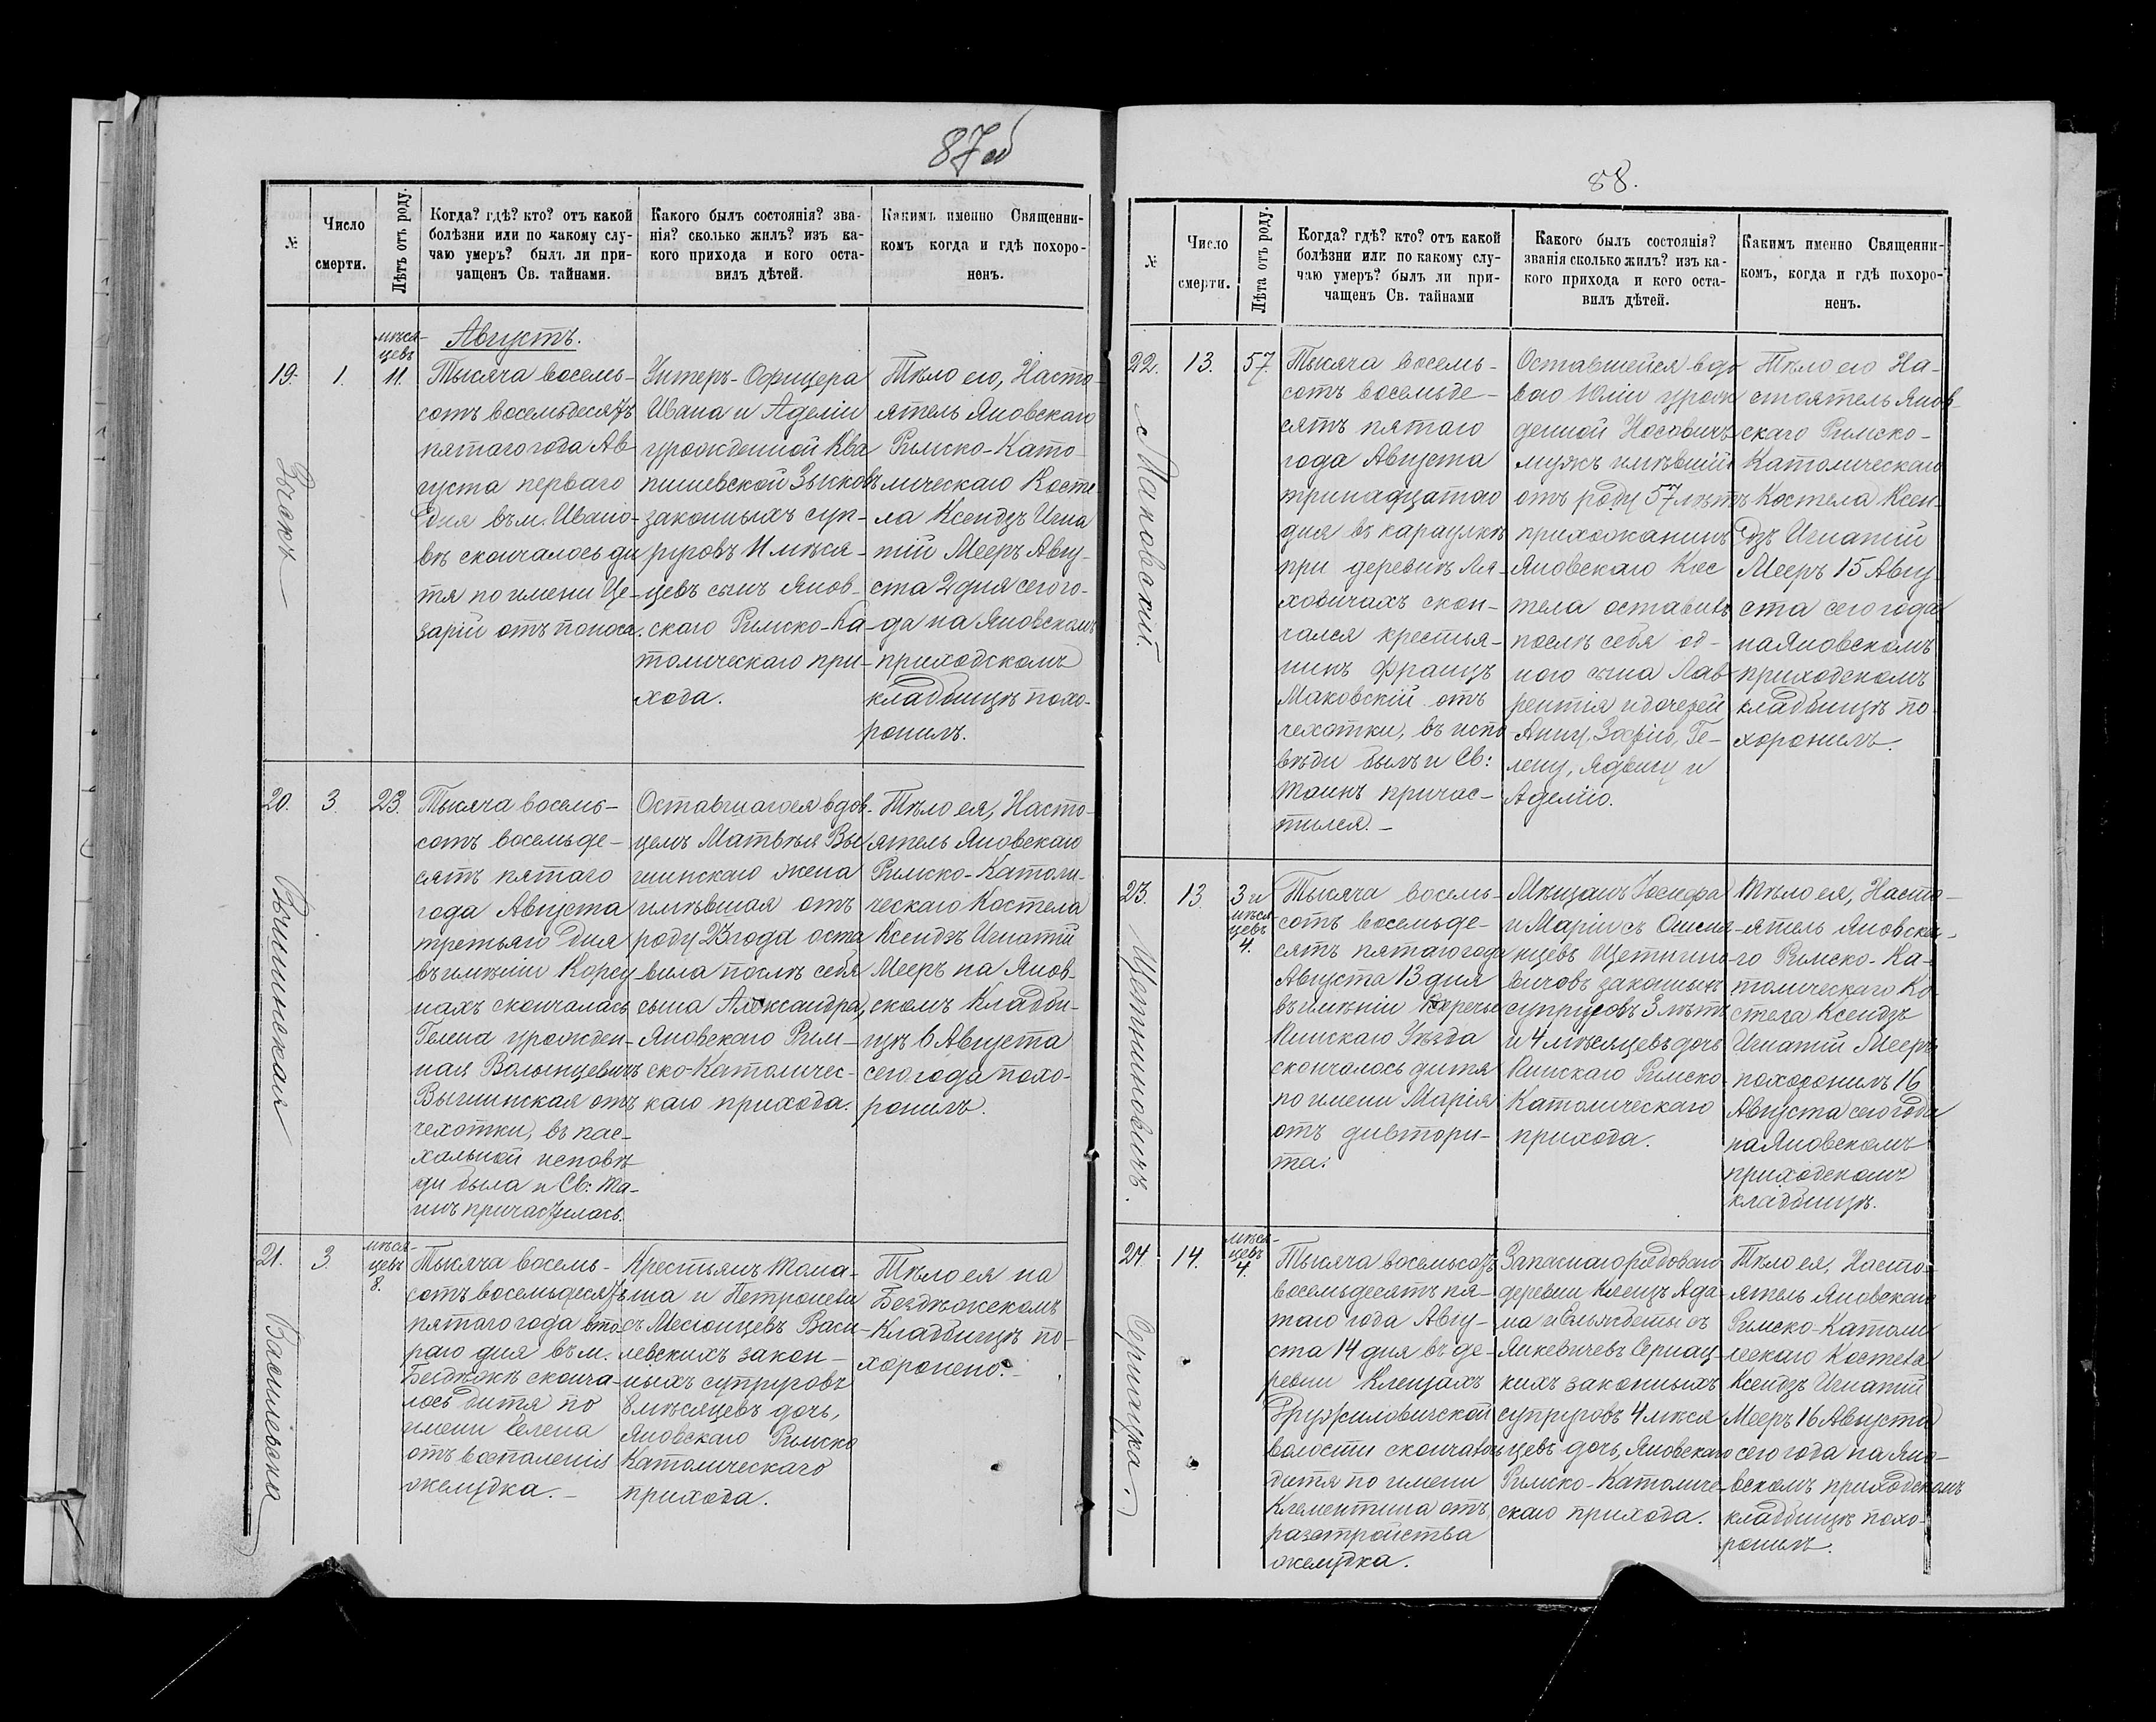 87об
№
Число
смерти.
Лѣтъ отъ роду.
Когда? гдѣ? кто? отъ какой
болѣзни или по какому слу-
чаю умеръ? былъ ли при-
чащенъ Св. тайнами.
Какого былъ состоянія? зва-
нія? сколько жилъ? изъ ка-
кого прихода и кого оста-
вилъ дѣтей.
Какимъ именно Священни-
комъ когда и гдѣ похоро-
ненъ.
Августъ.
19.
1.
мѣся-
цевъ
11.
Тысяча восемь-
сотъ восемьдесятъ
пятаго года Ав-
густа перваго
дня въ м. Ивано-
вѣ скончалось ди
тя по имени Це-
зарій отъ поноса.
Унтеръ-Офицера
Ивана и Аделіи
урожденной Ква
пишевской Зыковъ
законныхъ суп-
руговъ 11 мѣся-
цевъ сынъ Янов-
скаго Римско-Ка-
толическаго при-
хода.
Тѣло его, Насто-
ятель Яновскаго
Римско-Като-
лическаго Косте-
ла Ксендзъ Игна
тій Мееръ Авгу-
ста 2 дня сего го-
да на Яновскомъ
приходскомъ
кладбищѣ похо-
ронилъ.
20.
3.
23.
Тысяча восемь-
сотъ восемьде-
сятъ пятаго
года Августа
третьяго дня
въ имѣніи Корсу
нахъ скончалась
Гелена урожден-
ная Волынцевичъ
Выгинская отъ
чехотки, въ пас-
хальной исповѣ
ди была и Св: Та-
инъ причастилась.
Оставшагося вдов-
цемъ Матвѣя Вы
гинскаго жена
имѣвшая отъ
роду 23 года оста
вила послѣ себя
сына Александра,
Яновскаго Рим-
ско-Католичес-
каго прихода.
Тѣло ея, Насто-
ятель Яновскаго
Римско-Католи-
ческаго Костела
Ксендзъ Игнатій
Мееръ на Янов-
скомъ Кладби-
щѣ 6 Августа
сего года похо-
ронилъ.
21.
3.
мѣся-
цевъ
8.
Василевска
Тысяча восемь-
сотъ восемьдесятъ
пятаго года вто-
раго дня въ м.
Бездѣжѣ сконча-
лось дитя по
имени Елена
отъ воспаленія
желудка.-
Крестьянъ Тома-
ша и Петронели
съ Месюнцевъ Васи-
левскихъ закон-
ныхъ супруговъ
8 мѣсяцевъ дочь,
Яновскаго Римско
Католическаго
прихода.
Тѣло ея на
Бездѣжскомъ
Кладбищѣ по-
хоронено.-
88.
№
Число
смерти.
Лѣта отъ роду.
Когда? гдѣ? кто? отъ какой
болѣзни или по какому слу-
чаю умеръ? былъ ли при-
чащенъ Св. тайнами
Какого былъ состоянія?
званія сколько жилъ? изъ ка-
кого прихода и кого оста-
вилъ дѣтей.
Какимъ именно Священни-
комъ, когда и гдѣ похоро-
ненъ.
22.
13.
57.
Маковскій.
Тысяча восемь-
сотъ восемьде-
сятъ пятаго
года Августа
тринадцатаго
дня въ караулкѣ
при деревнѣ Ля-
ховичахъ скон-
чался крестья-
нинъ Францъ
Маковскій отъ
чехотки, въ испо
вѣди былъ и Св:
Таинъ причас-
тился.-
Оставшейся вдо
вою Юліи урож
денной Носовичъ
мужъ имѣвшій
отъ роду 57 лѣтъ
прихожанинъ
Яновскаго Кос
тела оставивъ
послѣ себя од-
ного сына Лав
рентія и дочерей
Анну, Зофію, Ге-
лену, Ядвигу и
Аделію.
Тѣло его На-
стоятель Янов-
скаго Римско-
Католическаго
Костела Ксен-
дзъ Игнатій
Мееръ 15 Авгу-
ста сего года
на Яновскомъ
приходскомъ
кладбищѣ по-
хоронилъ.
23.
13.
3 и
мѣся
цевъ
4.
Щетиновичъ.
Тысяча восемь-
сотъ восемьде-
сятъ пятаго года
Августа 13 дня
въ имѣніи Заречье
Пинскаго Уѣзда
скончалось дитя
по имени Марія
отъ дивтори-
та.
Мѣщанъ Іосифа
и Маріи съ
вичовъ законныхъ
супруговъ 3 лѣтъ
и 4 мѣсяцевъ дочь
Пинскаго Римско
Католическаго
прихода.
Тѣло ея, Насто-
ятель Яновска-
го Римско-Ка-
толическаго Ко-
стела Ксендзъ
Игнатій Мееръ
похоронилъ 16
Августа сего года
на Яновскомъ
приходскомъ
кладбищѣ.
24.
14.
мѣся-
цевъ
4.
Серпацка.
Тысяча восемьсотъ
восемьдесятъ пя-
таго года Авгу-
ста 14 дня въ де-
ревни Клещахъ
Дружиловичской
волости скончалось
дитя по имени
Клементина отъ
разстройства
желудка.
Запаснаго рядоваго
деревни Клещъ Ада-
ма и Ельжбеты съ
Янкевичевъ Серпац-
кихъ законныхъ
супруговъ 4 мѣся
цевъ дочь, Яновскаго
Римско-Католиче-
скаго прихода.
Тѣло ея, Насто-
ятель Яновскаго
Римско-Католи
ческаго Костела
Ксендзъ Игнатій
Мееръ 16 Августа
сего года на Яно-
вскомъ приходскомъ
кладбищѣ похо-
ронилъ.